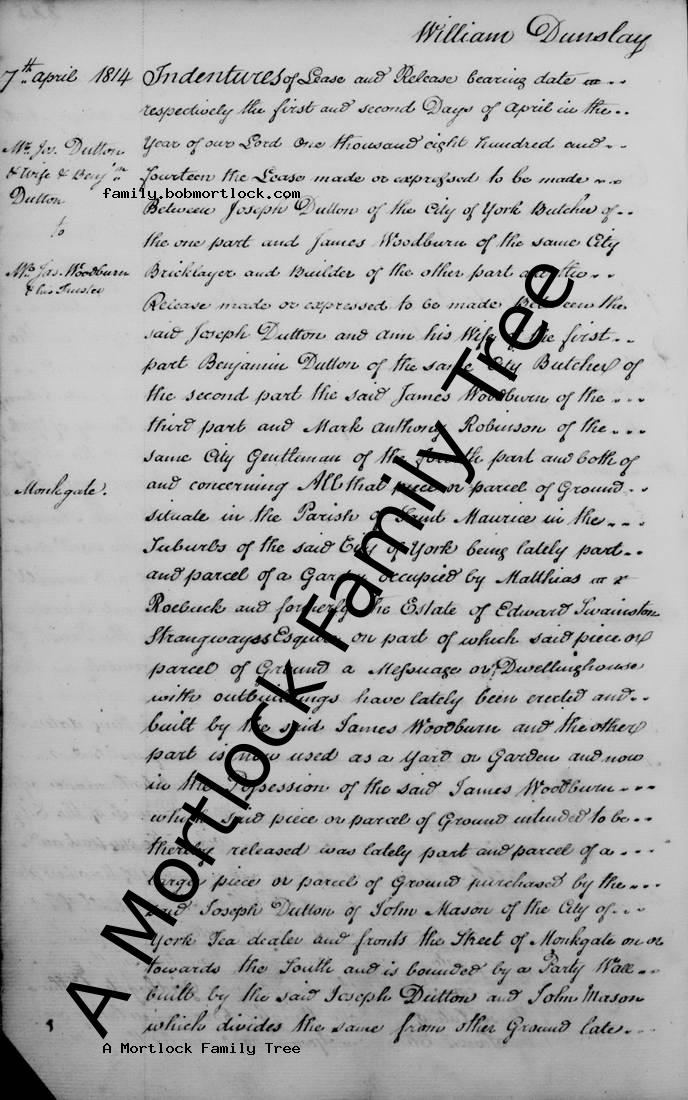 William Dunslay
7th april 1814
Mr. Jos. Dutton
& Wife & Benjn.
Dutton
to
Mr. Jas. Woodburn
& his Trustee
Monkgate.
Indentures of Lease and Release bearing date
respectively the first and second Days of April in the
Year of our Lord One thousand eight hundred and
fourteen the Lease made or expressed to be made
Between Joseph Dutton of the City of York Butcher of
the one part and James Woodburn of the same City
Bricklayer and Builder of the other part and the
Release made or expressed to be made Between the
said Joseph Dutton and Ann his Wife of the first
part Benjamin Dutton of the same City Butcher of
the second part the said James Woodburn of the
third part and Mark Anthony Robinson of the
same City Gentleman of the fourth part and both of
and concerning All that piece or parcel of Ground
situate in the Parish of Saint Maurice in the
Suburbs of the said City of York being lately part
and parcel of a Garden occupied by Matthias
Roebuck and formerly the Estate of Edward Swainston
Strangwayes Esquire on part of which said piece or
parcel of Ground a Messuage or Dwellinghouse
with outbuildings have lately been erected and
built by the said James Woodburn and the other
part is now used as a Yard or Garden and now
in the Possession of the said James Woodburn
which said piece or parcel of Ground intended to be
thereby released was lately part and parcel of a
large piece or parcel of Ground purchased by the
said Joseph Dutton of John Mason of the City of
York Tea dealer and fronts the Street of Monkgate on or
towards the South and is bounded by a Party Wall
built by the said Joseph Dutton and John Mason
which divides the same from other Ground late
family.bobmortlock.com
A Mortlock Family Tree
A Mortlock Family Tree